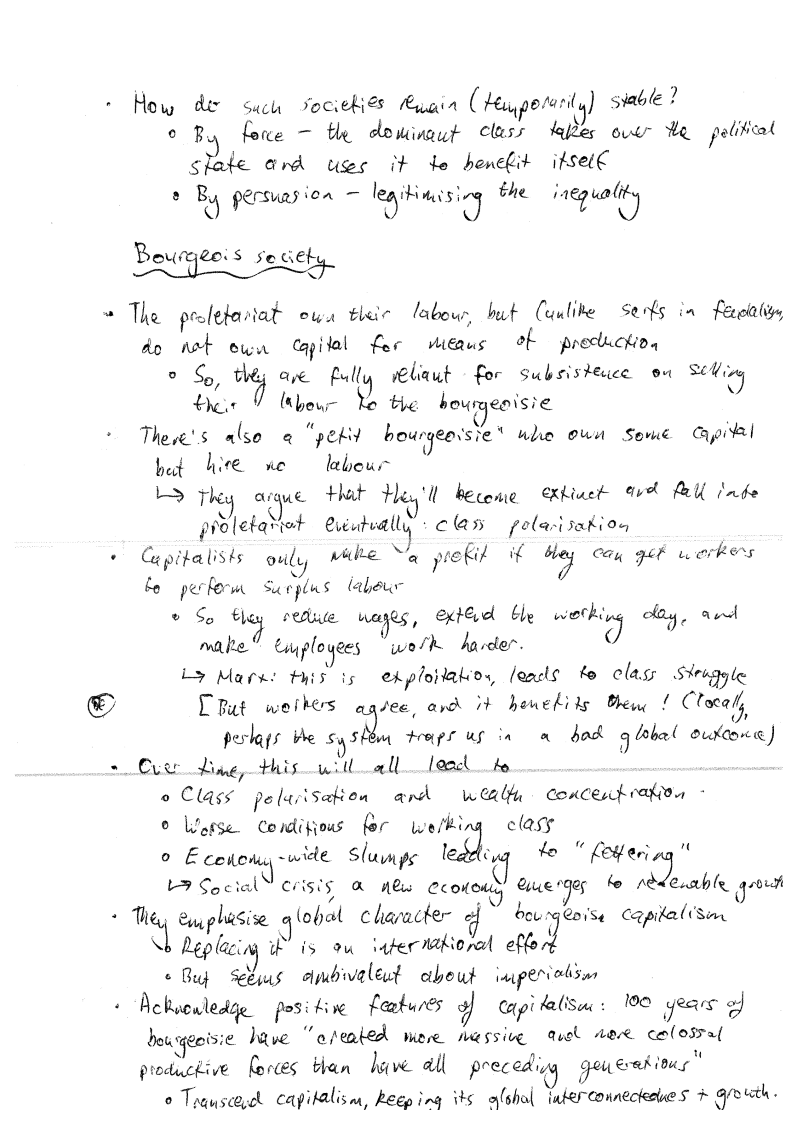 · How do such societies remain (temporarily) stable?
∘ By force – the dominant class takes over the political
state and uses it to benefit itself
∘ By persuasion – legitimising the inequality
Bourgeois society
· The proletariat own their labour, but (unlike serfs in feudalism,
do not own capital for means of production
∘ So, they are fully reliant for subsistence on selling
their labour to the bourgeoisie
· There's also a "petit bourgeoisie" who own some capital
but hire no labour
↳ They argue that they'll become extinct and fall into
proletariat eventually: class polarisation
· Capitalists only make a profit if they can get workers
to perform surplus labour
∘ So they reduce wages, extend the working day, and
make employees work harder.
↳ Marx: this is exploitation, leads to class struggle
[But workers agree, and it benefits them! (locally,
perhaps the system traps us in a bad global outcome)
· Over time, this will all lead to
∘ Class polarisation and wealth concentration.
∘ Worse conditions for working class
∘ Economy-wide slumps leading to "fettering"
↳ Social crisis, a new economy emerges to re-enable growth
· They emphasise global character of bourgeoise capitalism
∘ Replacing it is an international effort
∘ But seems ambivalent about imperialism
· Acknowledge positive features of capitalism: 100 years of
bourgeoisie have "created more massive and more colossal
productive forces than have all preceding generations"
∘ Transcend capitalism, keeping its global interconnectednes + growth.